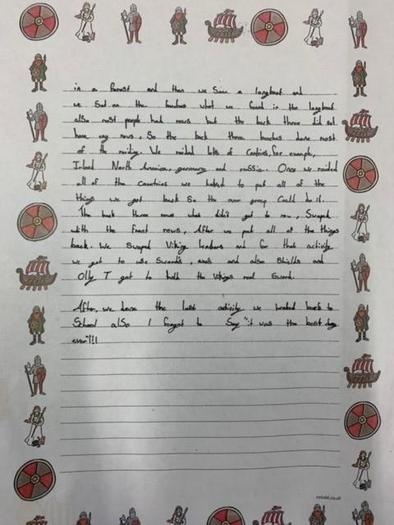 in a forest and then we saw a longboat and
we sat on the benches what we found in the longboat
also most people had rows but the back three did not
have any rows. So the back three benches done most
of the raiding. We raided lots of contries for example,
Irland North America, germany and russia. Once we raided
all of the countries we helped to put all of the
things we got back So the next group Could do it.
The back three rows what didn't get to row, Swaped
with the front rows. After we put all of the things
back. We Swaped Viking leaders and for that activity
we got to use Swords, and also Shields and
Olly T got to hold the Vikings real Sword.
After, we done the last activity we walked back to
School also I forgot to Say "it was the best day
ever!!!!